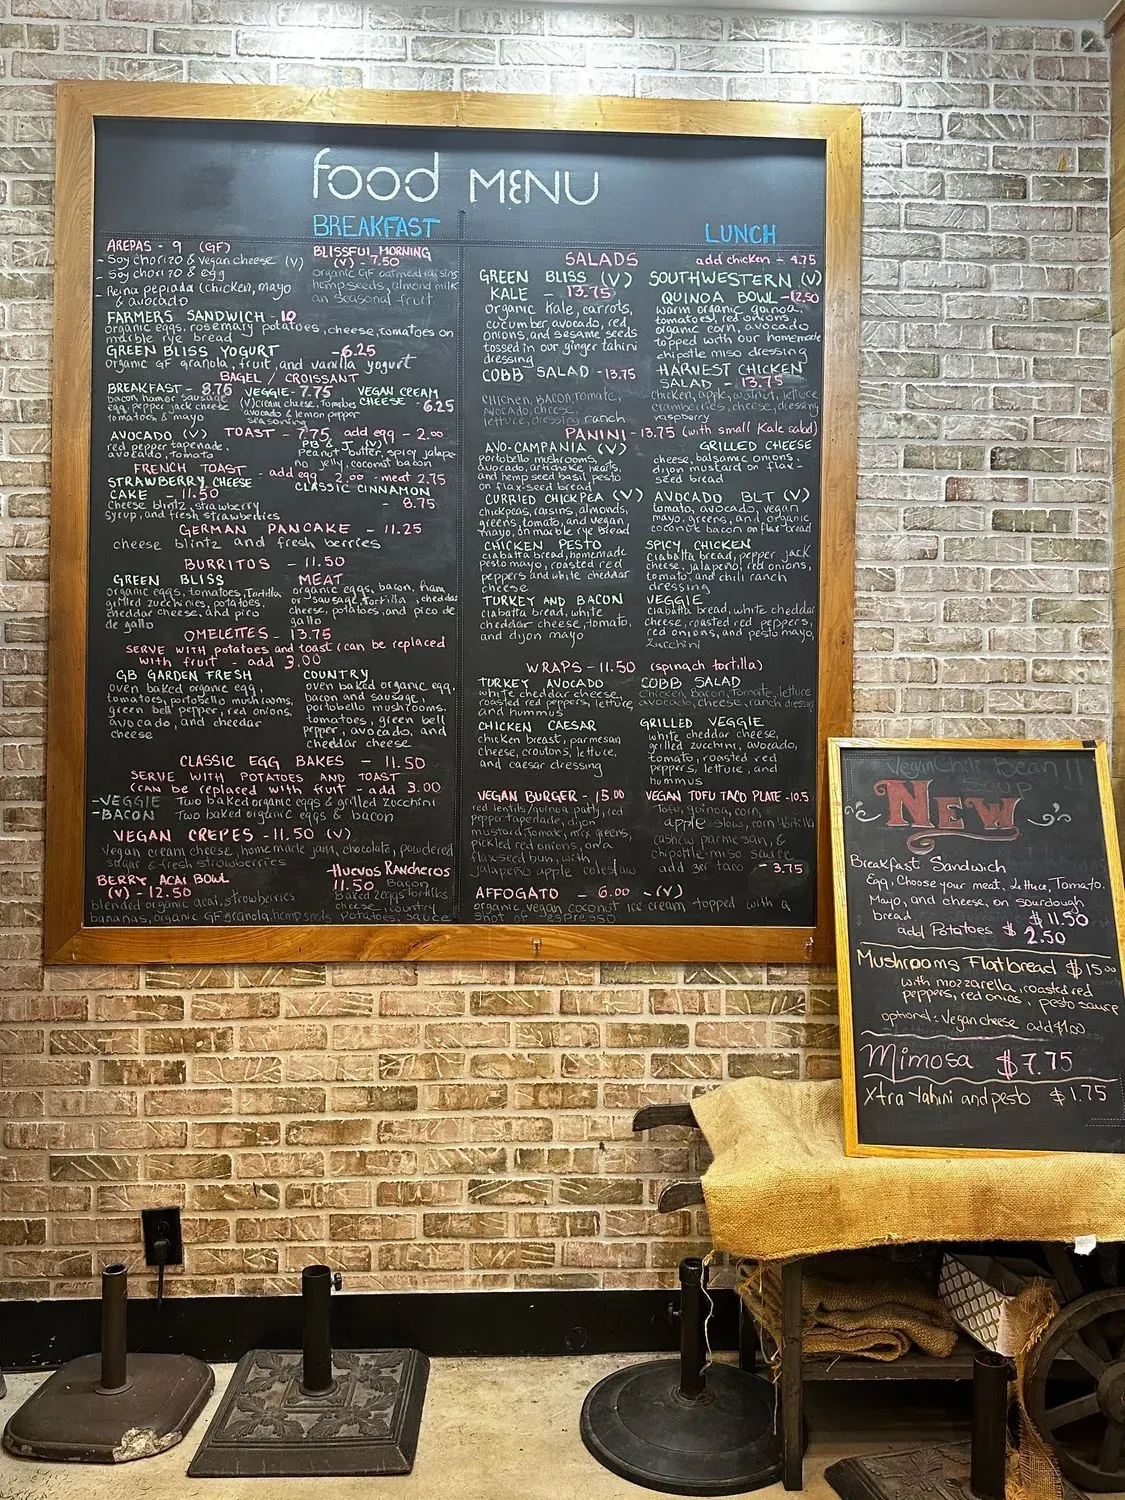 food MENU
BREAKFAST
AREPAS - 9 (GF)
- Soy chorizo & vegan cheese (V)
- Soy chorizo & egg
- Reina pepiada (chicken, mayo
& avocado
BLISSFUL MORNING
(V) - 7.50
organic GF oatmeal, raisins
hemp seeds, almond milk
an seasonal fruit.
FARMERS SANDWICH - 10
organic eggs, rosemary potatoes, cheese, tomatoes on
marble rye bread
GREEN BLISS YOGURT - 6.25
organic GF granola, fruit, and vanilla yogurt
BAGEL / CROISSANT
BREAKFAST - 8.75
bacon, ham or sausage
egg, pepper jack cheese
tomatoes, & mayo
VEGGIE - 7.75
(V) cream cheese, Tomatoes
avocado & lemon pepper
seasoning
VEGAN CREAM
CHEESE - 6.25
TOAST - 7.75 add egg - 2.00
AVOCADO (V)
red pepper tapenade,
avocado, tomato
PB & J (V)
Peanut butter, spicy jalape-
no jelly, coconut bacon
FRENCH TOAST - add egg - 2.00 - meat 2.75
STRAWBERRY CHEESE
CAKE - 11.50
Cheese blintz, strawberry
syrup, and fresh strawberries
CLASSIC CINNAMON
- 8.75
GERMAN PANCAKE - 11.25
cheese blintz and fresh berries
BURRITOS - 11.50
GREEN BLISS
organic eggs, tomatoes, Tortilla
grilled zucchinies, potatoes,
cheddar cheese, and pico
de gallo
MEAT
organic eggs, bacon, ham
or sausage, tortilla, cheddar
cheese, potatoes, and pico de
gallo
OMELETTES - 13.75
SERVE WITH potatoes and toast (can be replaced
with fruit - add 3.00
GB GARDEN FRESH
oven baked organic egg,
tomatoes, portobello mushrooms,
green bell pepper, red onions,
avocado, and cheddar
cheese
COUNTRY
oven baked organic egg,
bacon and sausage,
portobello mushrooms,
tomatoes, green bell
pepper, avocado, and
cheddar cheese
CLASSIC EGG BAKES - 11.50
SERVE WITH POTATOES AND TOAST
(can be replaced with fruit - add 3.00
- VEGGIE Two baked organic eggs & grilled zucchini
- BACON Two baked organic eggs & bacon
VEGAN CREPES - 11.50 (V)
Vegan cream cheese, homemade jam, chocolate, powdered
sugar & fresh strawberries
BERRY ACAI BOWL
(V) - 12.50
blended organic acai, strawberries
bananas, organic GF granola, hemp seeds
Huevos Rancheros
11.50 Bacon
Baked 2 eggs tortillas
cheese, country
Potatoes, sauce
LUNCH
SALADS add chicken - 4.75
GREEN BLISS (V)
KALE - 13.75
Organic kale, carrots,
cucumber avocado, red
onions, and sesame seeds
tossed in our ginger tahini
dressing
SOUTHWESTERN (V)
QUINOA BOWL - 12.50
warm organic quinoa,
tomatoes, red onions,
organic corn, avocado
topped with our homemade
chipotle miso dressing
COBB SALAD - 13.75
CHICKEN, BACON, Tomate,
Avocado, cheese,
lettuce, dressing ranch
HARVEST CHICKEN
SALAD - 13.75
chicken, apple, walnut, lettuce
cramberries, cheese, dressing
raspberry
PANINI - 13.75 (with small Kale salad)
AVO-CAMPANIA (V)
portobello mushrooms,
avocado, artichoke hearts,
and hemp seed basil pesto
on flax-seed bread
GRILLED CHEESE
cheese, balsamic onions,
dijon mustard on flax-
seed bread
CURRIED CHICKPEA (V)
chickpeas, raisins, almonds,
greens, tomato, and vegan
mayo, on marble rye bread
AVOCADO BLT (V)
tomato, avocado, vegan
mayo, greens, and organic
coconut bacon on flax bread
CHICKEN PESTO
ciabatta bread, homemade
pesto mayo, roasted red
peppers and white cheddar
cheese
SPICY CHICKEN
ciabatta bread, pepper jack
cheese, jalapeño, red onions,
tomato, and chili ranch
dressing
TURKEY AND BACON
ciabatta bread, white
cheddar cheese, tomato,
and dijon mayo
VEGGIE
ciabatta bread, white cheddar
cheese, roasted red peppers,
red onions, and pesto mayo,
Zucchini
WRAPS - 11.50 (spinach tortilla)
TURKEY AVOCADO
white cheddar cheese,
roasted red peppers, lettuce
and hummus
COBB SALAD
Chicken, Bacon, Tomate, lettuce
avocado, cheese, ranch dressing
CHICKEN CAESAR
chicken breast, parmesan
cheese, croutons, lettuce,
and caesar dressing
GRILLED VEGGIE
white cheddar cheese,
grilled zucchini, avocado,
tomato, roasted red
peppers, lettuce, and
hummus
VEGAN BURGER - 15.00
red lentils/quinoa patty, red
pepper tapenade, dijon
mustard, Tomate, mix greens,
pickled red onions, on a
flaxseed bun, with
jalapeño apple coleslaw
VEGAN TOFU TACO PLATE - 10.5
Tofu, quinoa, corn,
apple slaw, corn tortilla
cashew parmesan, &
chipotle-miso sauce
add 3er taco - 3.75
AFFOGATO - 6.00 - (V)
organic vegan coconut ice cream topped with a
shot of espresso
Vegan Chili Bean !!
SOUP
NEW
Breakfast Sandwich
Egg, Choose your meat, Lettuce, Tomato.
Mayo, and cheese, on sourdough
bread. $11.50
add Potatoes $ 2.50
Mushrooms Flatbread $15.00
with mozzarella, roasted red
peppers, red onios, pesto sauce
optional: Vegan cheese add $1.00
Mimosa $7.75
Xtra tahini and pesto $1.75